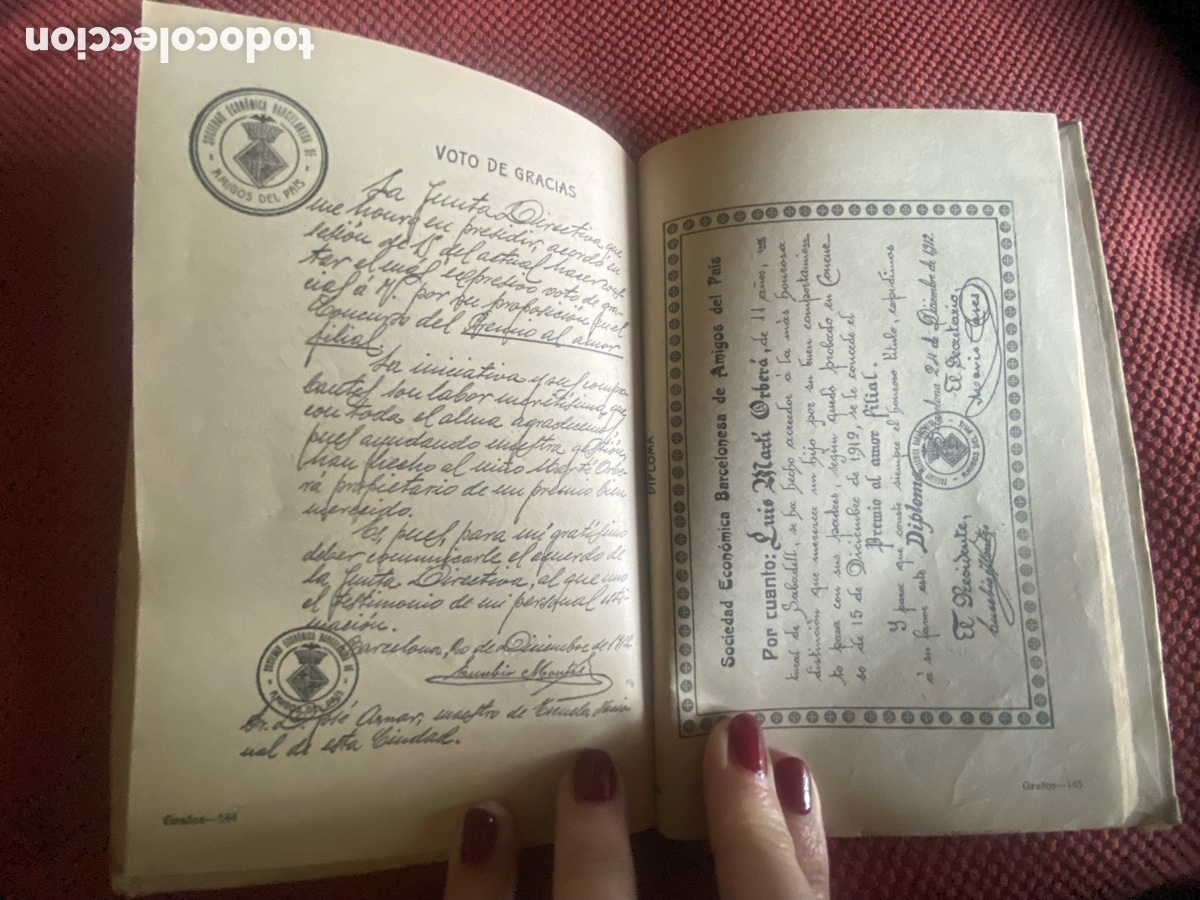 todocoleccion
SOCIEDAD ECONÓMICA BARCELONESA DE
AMIGOS DEL PAÍS
VOTO DE GRACIAS
La Junta Directiva, que
me honro en presidir, acordó en
sesión de 15 del actual hacer cons-
tar el más expresivo voto de gra-
cias á V. por su proposición en el
Concurso del Premio al amor
filial.
Su iniciativa y sus compro-
bantes son labor meritísima, que
con toda el alma agradecemos,
pues ayudando nuestra gestión,
han hecho al niño Martí Orbe-
rá propietario de un premio bien
merecido.
Es, pues, para mi gratísimo
deber comunicarle el acuerdo de
la Junta Directiva, al que uno
el testimonio de mi personal esti-
mación.
Barcelona, 20 de Diciembre de 1912
SOCIEDAD ECONÓMICA BARCELONESA DE
AMIGOS DEL PAÍS
Sr. D. José Aznar, maestro de Escuela Nacio-
nal de esta Ciudad.
Grafos—144
DIPLOMA
Sociedad Económica Barcelonesa de Amigos del País
Por cuanto: Luis Martí Orberá, de 11 años, na
tural de Sabadell, se ha hecho acreedor á la más honrosa
distinción que merezca un hijo por su buen comportamien
to para con sus padres, según quedó probado en Concur
so de 15 de Diciembre de 1912, se le concede el
Premio al amor filial.
Y para que conste siempre el honroso título, expedimos
á su favor este Diploma Barcelona 24 de Diciembre de 1912
El Presidente,
El Secretario,
SOCIEDAD ECONÓMICA BARCELONESA DE
AMIGOS DEL PAÍS
Grafos—145